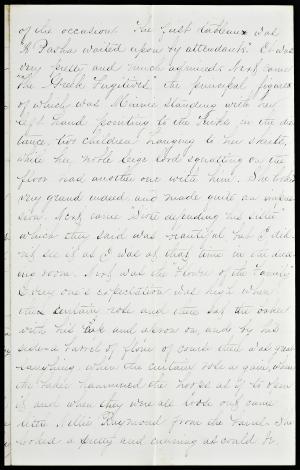 of the occasion. The first tableaux was
"A Pasha waited upon by attendants." It was
very pretty and much admired. Next came
"The Greek Fugitives" the principal figure
of which was Minnie standing with her
left hand pointing to the Turks in the dis
tance, two children hanging to her skirts,
while her noble liege lord squatting on the
floor had another one with him. She looked
very grand indeed, and made quite an impres
sion. Next came defending his sister
which they said was beautiful, but I did
not see it as I was at that time in the dress
ing room. Next was the Flower of the Family
Every one's expectation was high when
the curtain rose and there sat the baker
with his cap and apron on, and by his
side a barrel of flour of course there was great
laughing. When the curtain rose again, when
the baker hammered the hoops as if to open
it and when they were all loose out came
little Nellie Raymond from the barrel. She
looked as pretty and cunning as could be